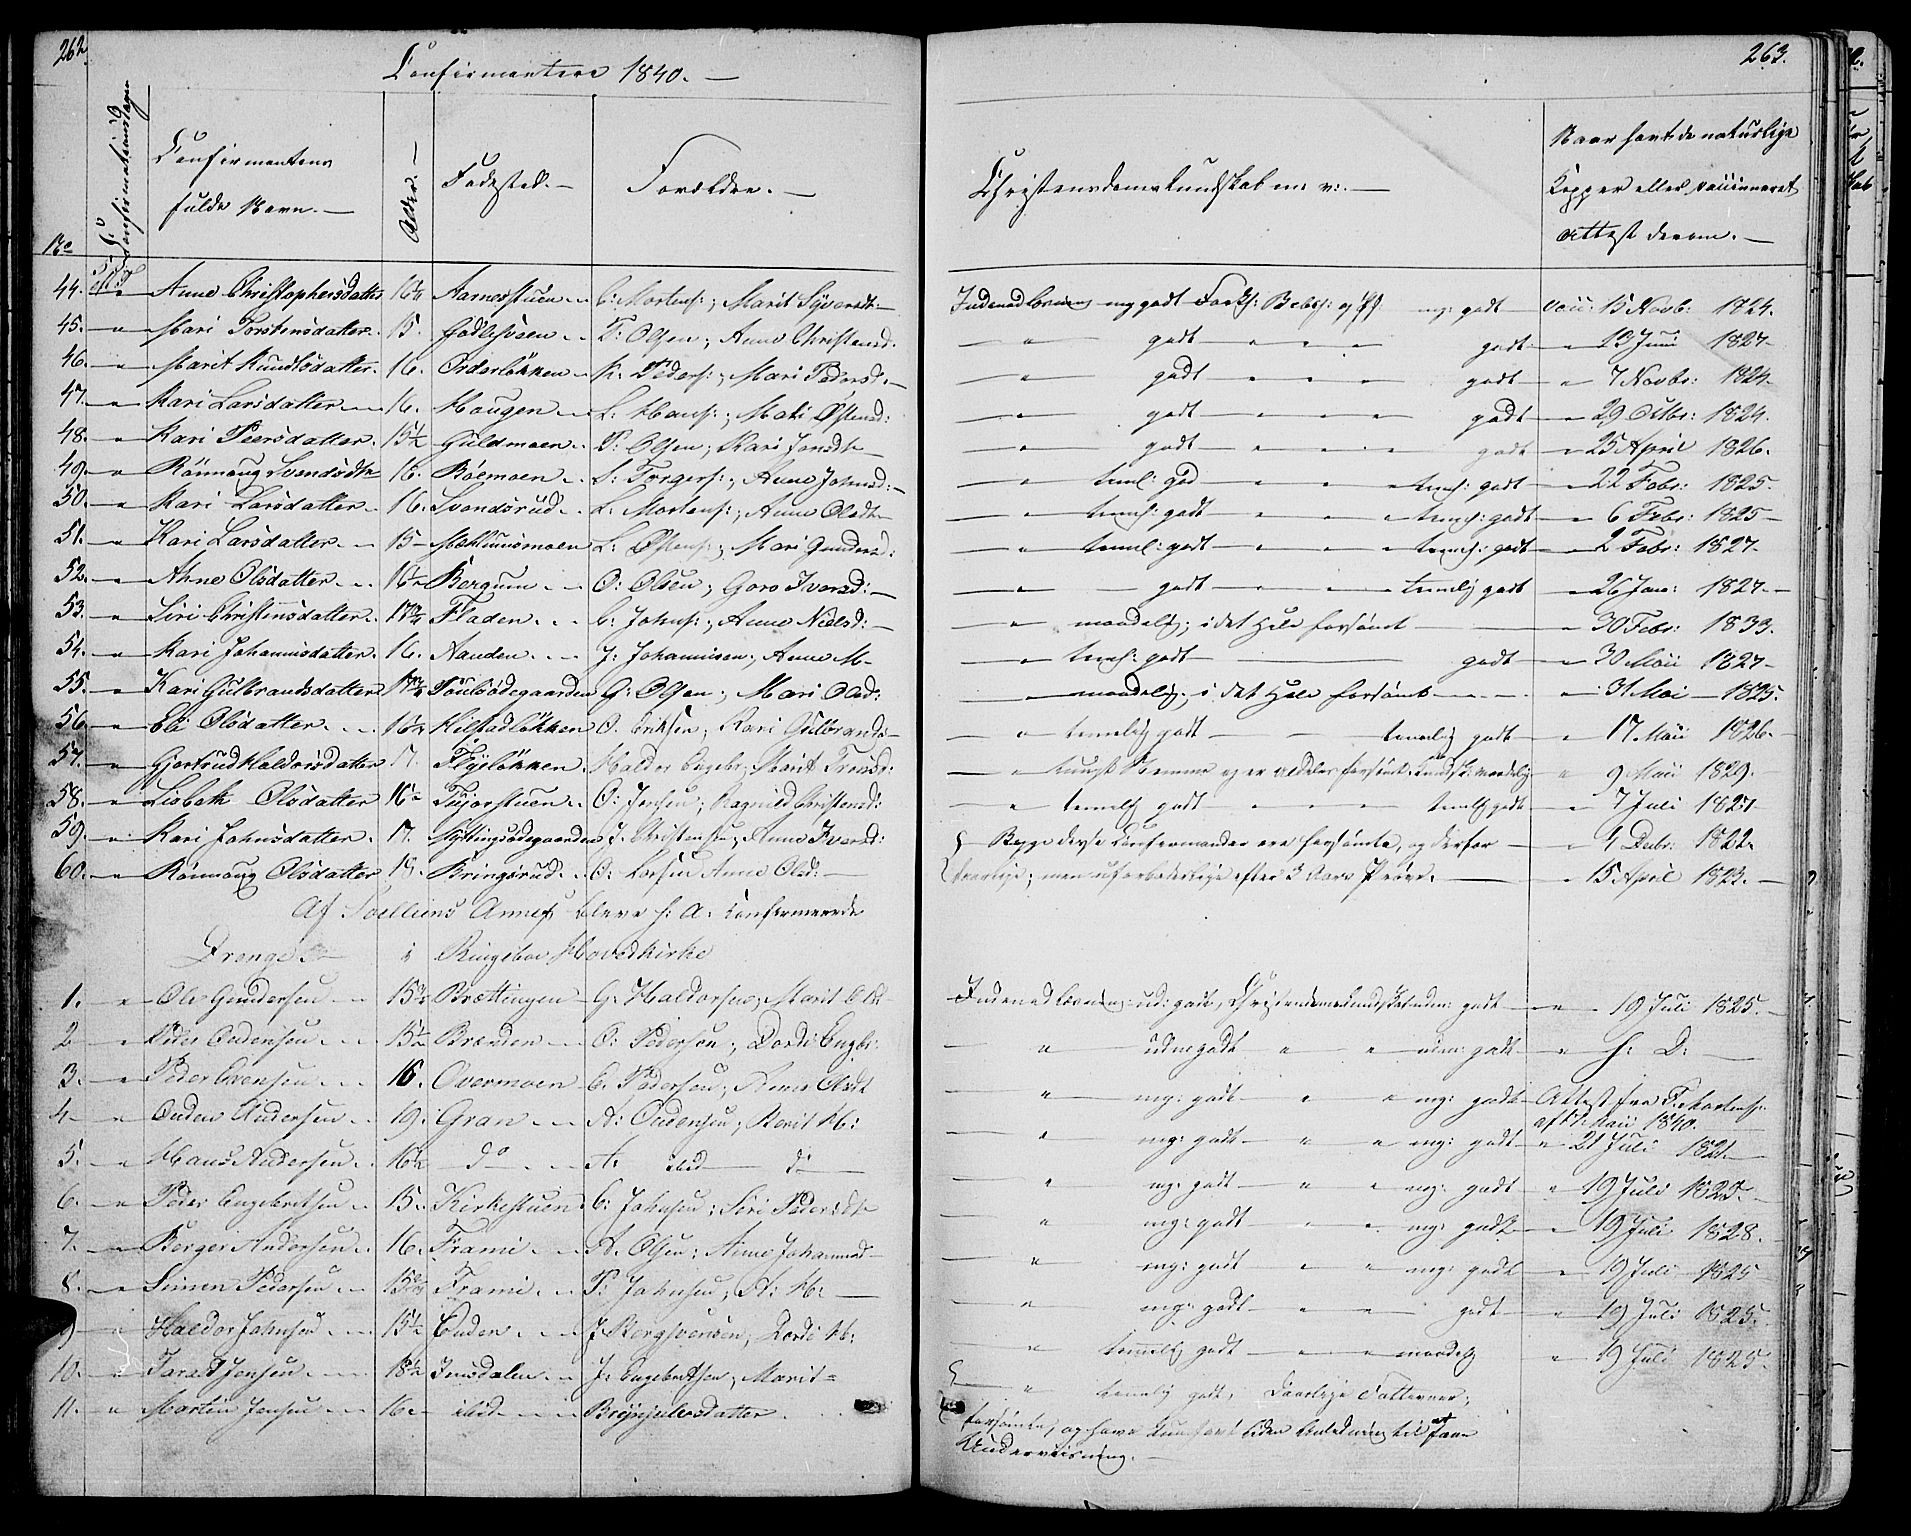 262.
Confirmantere 1840. —
No
Confirmationsdagen
Confirmantens fulde Navn. —
Alder. —
Fødested. —
Forældre. —
44. Anne Christophersdatter 16 1/4 Aarnesstuen C: Mortens:; Marit Syversdt: —
45. Mari Torstensdatter. 15. Godlesveen T: Olsen; Anne Christensd.
46. Marit Knudsdatter. 16. K: Peders:; Mari Pedersd. —
47. Kari Larsdatter 16. Haugen L: Hans:; Mari Østensd:
48. Kari Peersdatter. 15 1/2 Guldmoen P: Olsen; Kari Jonsdt —
49. Rönnaug Svendsdtr 16. Böemoen S: Torgers:; Anne Johnsd: —
50. Kari Larsdatter 16. Svendsrud L: Mortens:; Anne Olsdt —
51. Kari Larsdatter. 15 L: Østens:; Mari Gundersd:
52. Anne Olsdatter 16 1/2 Bergum O: Olsen; Goro Iversd: —
53. Siri Christensdatter. 17 3/4 Fladen C: Johns:; Anne Nielsd: —
54. Kari Johannisdatter. 16. Aanden J: Johannesen; Anne M—
55. Kari Gulbrandsdatter 17 3/4 Poulsödegaarden G: Olsen; Mari Olsd:
56. Eli Olsdatter 16 1/2 Kilstadlökken O. Eriksen; Kari Gulbrands—
57. Gjertrud Haldorsdatter 17. Flyelökken Haldor Engebr:; Marit Tronsd:
58. Lisbeth Olsdatter 16 O: Jensen; Ragnild Christensd:
59. Kari Johnsdatter. 17. J. Christensen; Anne Iversd:
60. Rönnaug Olsdatter 19. Bringsrud O: Larsen Anne Olsd: —
Af Soelliens Annex bleve h: A: Confirmerede
Drenge i Ringeboe Hovedkirke
1. Ole Gundersen 15 3/4 Brættingen G: Haldorsen; Marit
2 Peder Oudensen 15 1/2 Brænden O: Pedersen; Dordi Engbr:
3. Peder Evensen 16. Overmoen E. Pedersen; Anne Olsdt
4. Ouden Andersen 19. Gran A: Oudensen; Berit H:
5. Hans Andersen 16 1/2 do A: ibid do
6. Peder Engebretsen 15. Kirkestuen E: Johnsen; Siri Pedersdt
7. Borger Andersen 16. Frami A. Olsen; Anne Johannesd—
8. Simen Pedersen 15 3/4 Frami P: Johnsen; A: H: —
9 Haldor Johnsen 15 1/2 Enden J Bergsvensen; Dordi H:
10. Tarald Jensen 18 1/2 Imsdalen J: Engebretsen; Marit=
11. Martin Jensen 16 ibid Brynjulvsdatter.
263.
Christensdomskundskab m: v: —
Naar havt de naturlige Kopper eller vaccineret Attest derom. —
Indenadlæsning mg godt Forst: Bebs: og mg: godt vacc: 15 Novb: 1824.
godt godt 13 Juni 1827
godt godt 7 Novbr: 1824.
godt godt 29 Octbr: 1824.
godt godt 25 April 1826.
teml: god teml: godt 22 Febr: 1825.
teml: godt teml: godt 6 Febr: 1825
teml: godt teml: godt 2 Febr: 1827
godt temelig godt 26 Jan: 1827
maadelig; i det Hele forsömt 30 Febr: 1833.
teml: godt godt 30 Maii 1827
maadelig; i det Hele forsömt 31 Mai 1825.
temelig godt temelig godt 17 Maii 1826.
tungt Nemme og er aldeles forsömt. Kundsk: maadelig 9 Maii 1829.
temelig godt temelig godt 7 Juli 1827
Begge disse Confirmander ere forsömte, og derfor 4 Decbr: 1822.
daarlige; men uforbederlige efter 3 Aars Pröve. 15 April 1823.
Indenadlæsning: ud: godt, Christendomskundskab uden: godt 19 Juli 1825.
udm: godt udm: godt h: D:
mg: godt mg: godt Attest fra T: Mortensen
af 17 Maii 1840.
mg: godt mg: godt 21 Juli 1821
mg: godt mg: godt 19 Juli 1825.
mg: godt mg: godt 19 Juli 1828.
mg: godt mg: godt 19 Juli 1825
mg: godt godt 19 Juli 1825.
temelig godt maadelig 19 Juli 1825.
temelig godt, daarlige Fatteevner;
forsömte, og have kun havt liden Anledning til at faae
Underviisning. —